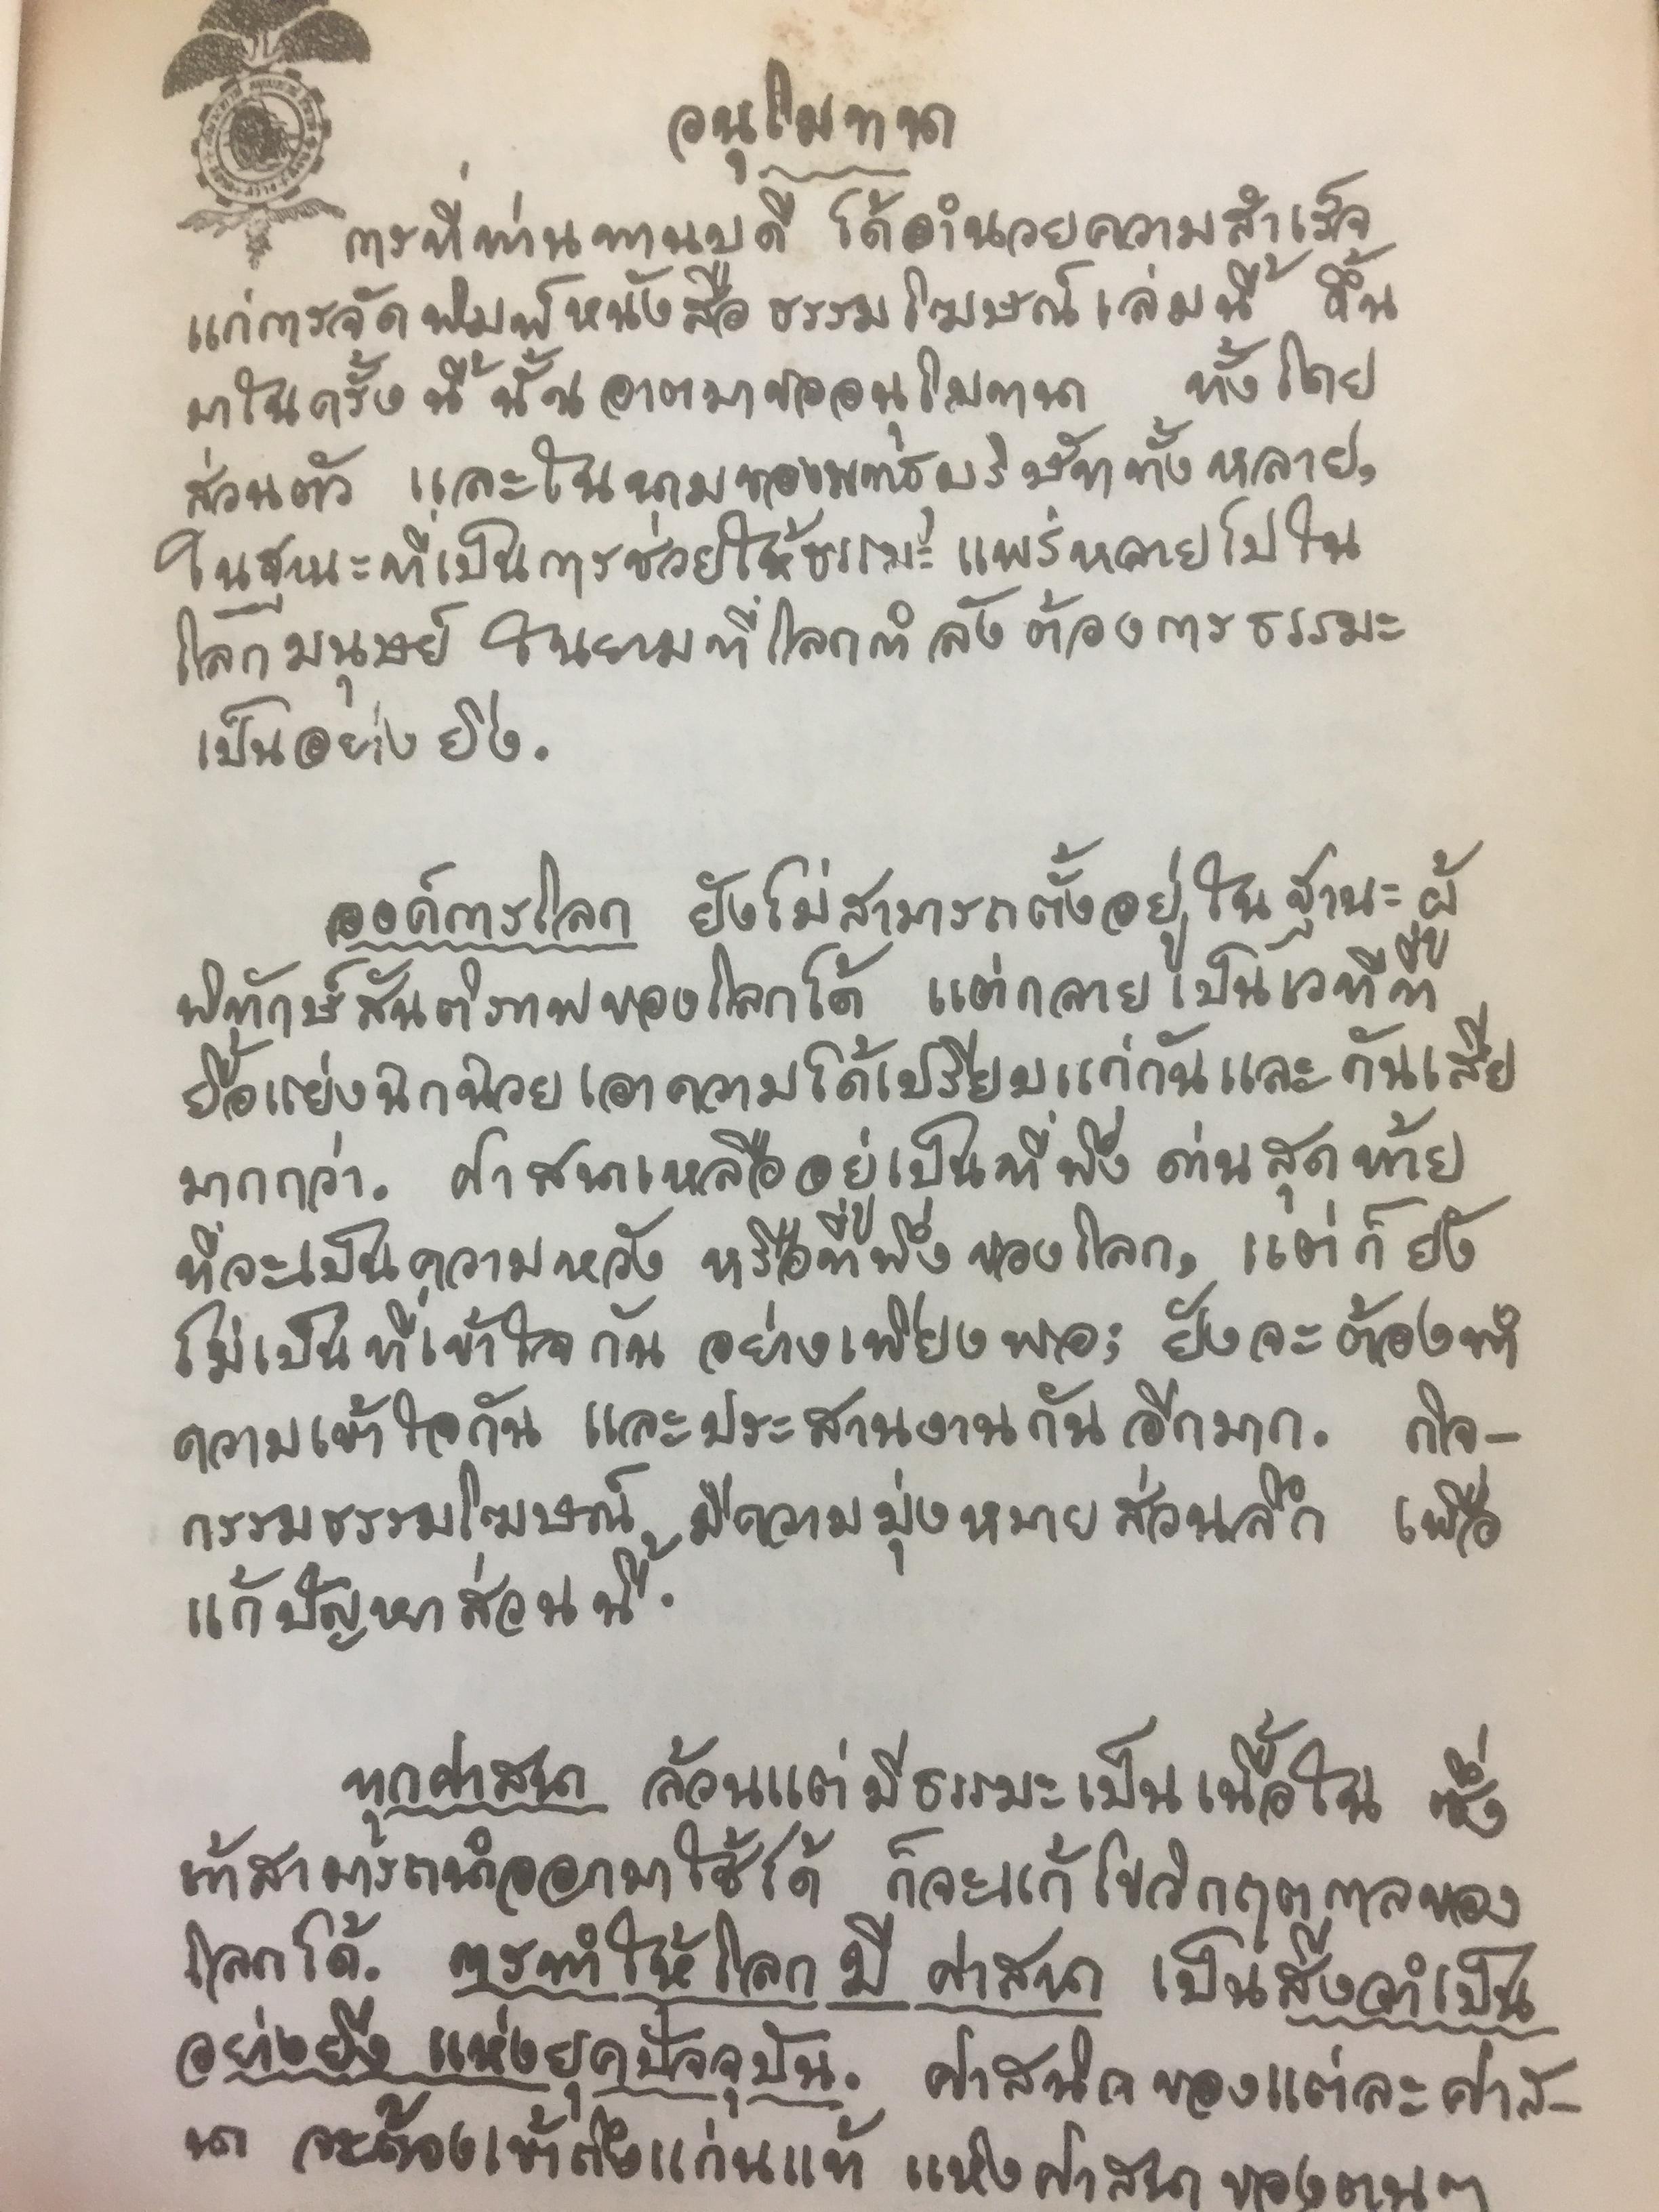 อนุโมทนา
การที่ท่านทานบดี ได้อำนวยความสำเร็จ
แก่การจัดพิมพ์หนังสือ ธรรมโฆษณ์เล่มนี้ ขึ้น
มาในครั้งนี้นั้น อาตมาขออนุโมทนา ทั้งโดย
ส่วนตัว และในนามของพุทธบริษัททั้งหลาย,
ในฐานะที่เป็นการช่วยให้ธรรมะ แพร่หลายไปใน
โลกมนุษย์ ในยามที่โลกกำลังต้องการธรรมะ
เป็นอย่างยิ่ง.
องค์การโลก ยังไม่สามารถตั้งอยู่ในฐานะผู้
พิทักษ์สันติภาพของโลกได้ แต่กลายเป็นเวทีที่
ยื้อแย่งฉกฉวยเอาความได้เปรียบแก่กันและกันเสีย
มากกว่า. ศาสนาเหลืออยู่เป็นที่พึ่ง ด่านสุดท้าย
ที่จะเป็นความหวัง หรือที่พึ่งของโลก, แต่ก็ยัง
ไม่เป็นที่เข้าใจกัน อย่างเพียงพอ; ยังจะต้องทำ
ความเข้าใจกัน และประสานงานกันอีกมาก. กิจ-
กรรมธรรมโฆษณ์ มีความมุ่งหมายส่วนลึก เพื่อ
แก้ปัญหาส่วนนี้.
ทุกศาสนา ล้วนแต่มีธรรมะเป็นเนื้อใน ซึ่ง
ถ้าสามารถนำออกมาใช้ได้ ก็จะแก้ไขวิกฤตกาลของ
โลกได้. การทำให้โลกมีศาสนา เป็นสิ่งจำเป็น
อย่างยิ่ง แห่งยุคปัจจุบัน. ศาสนิกของแต่ละศาส-
นา จะต้องเข้าถึงแก่นแท้ แห่งศาสนาของตนๆ